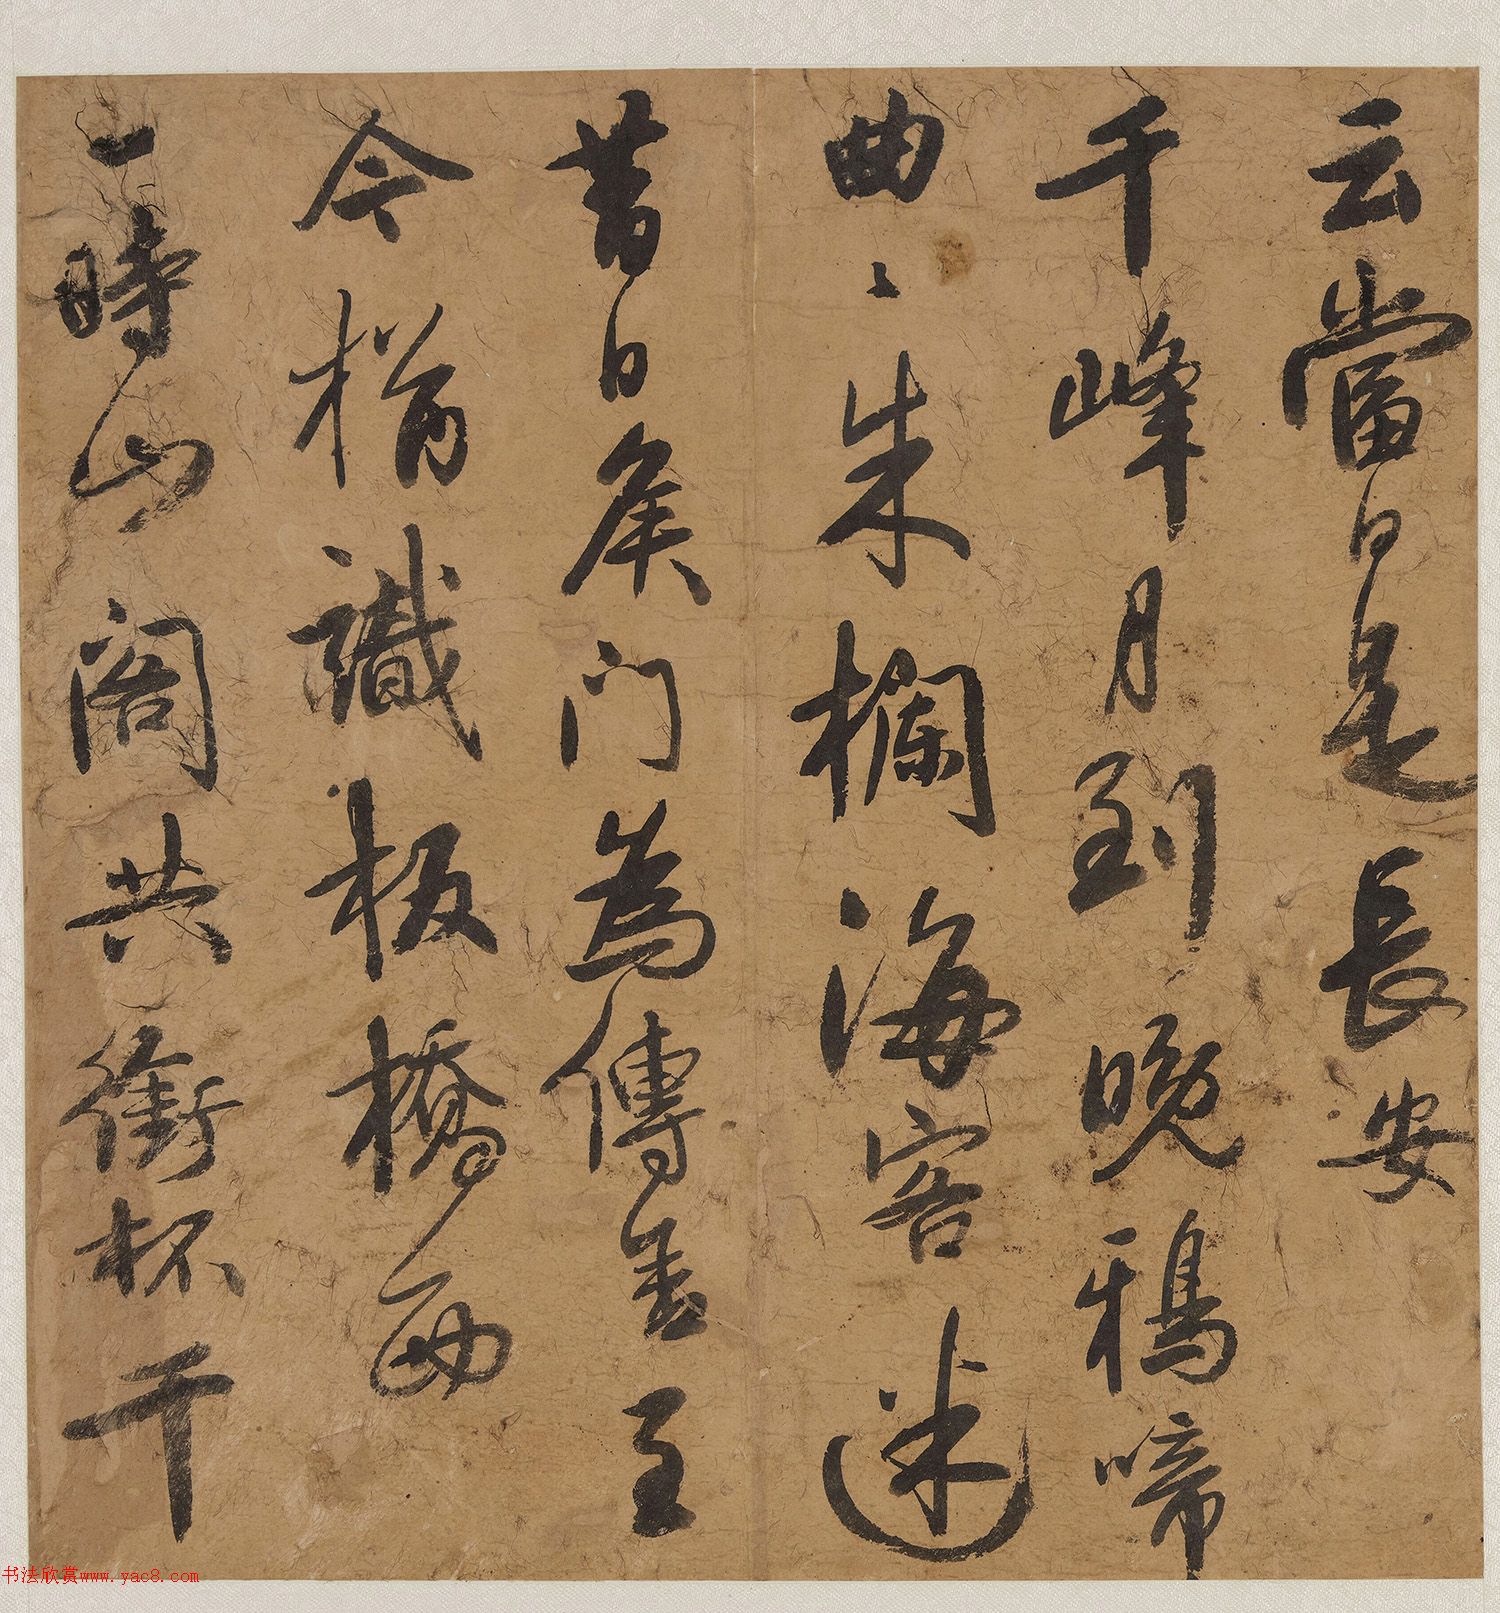 云當日是長安
千峰月到晚鴉啼
曲〻朱欄海客迷
昔日矦門為傳舍至
今識板橋西
一時山閣共銜杯千
书法欣赏www.yac8.com